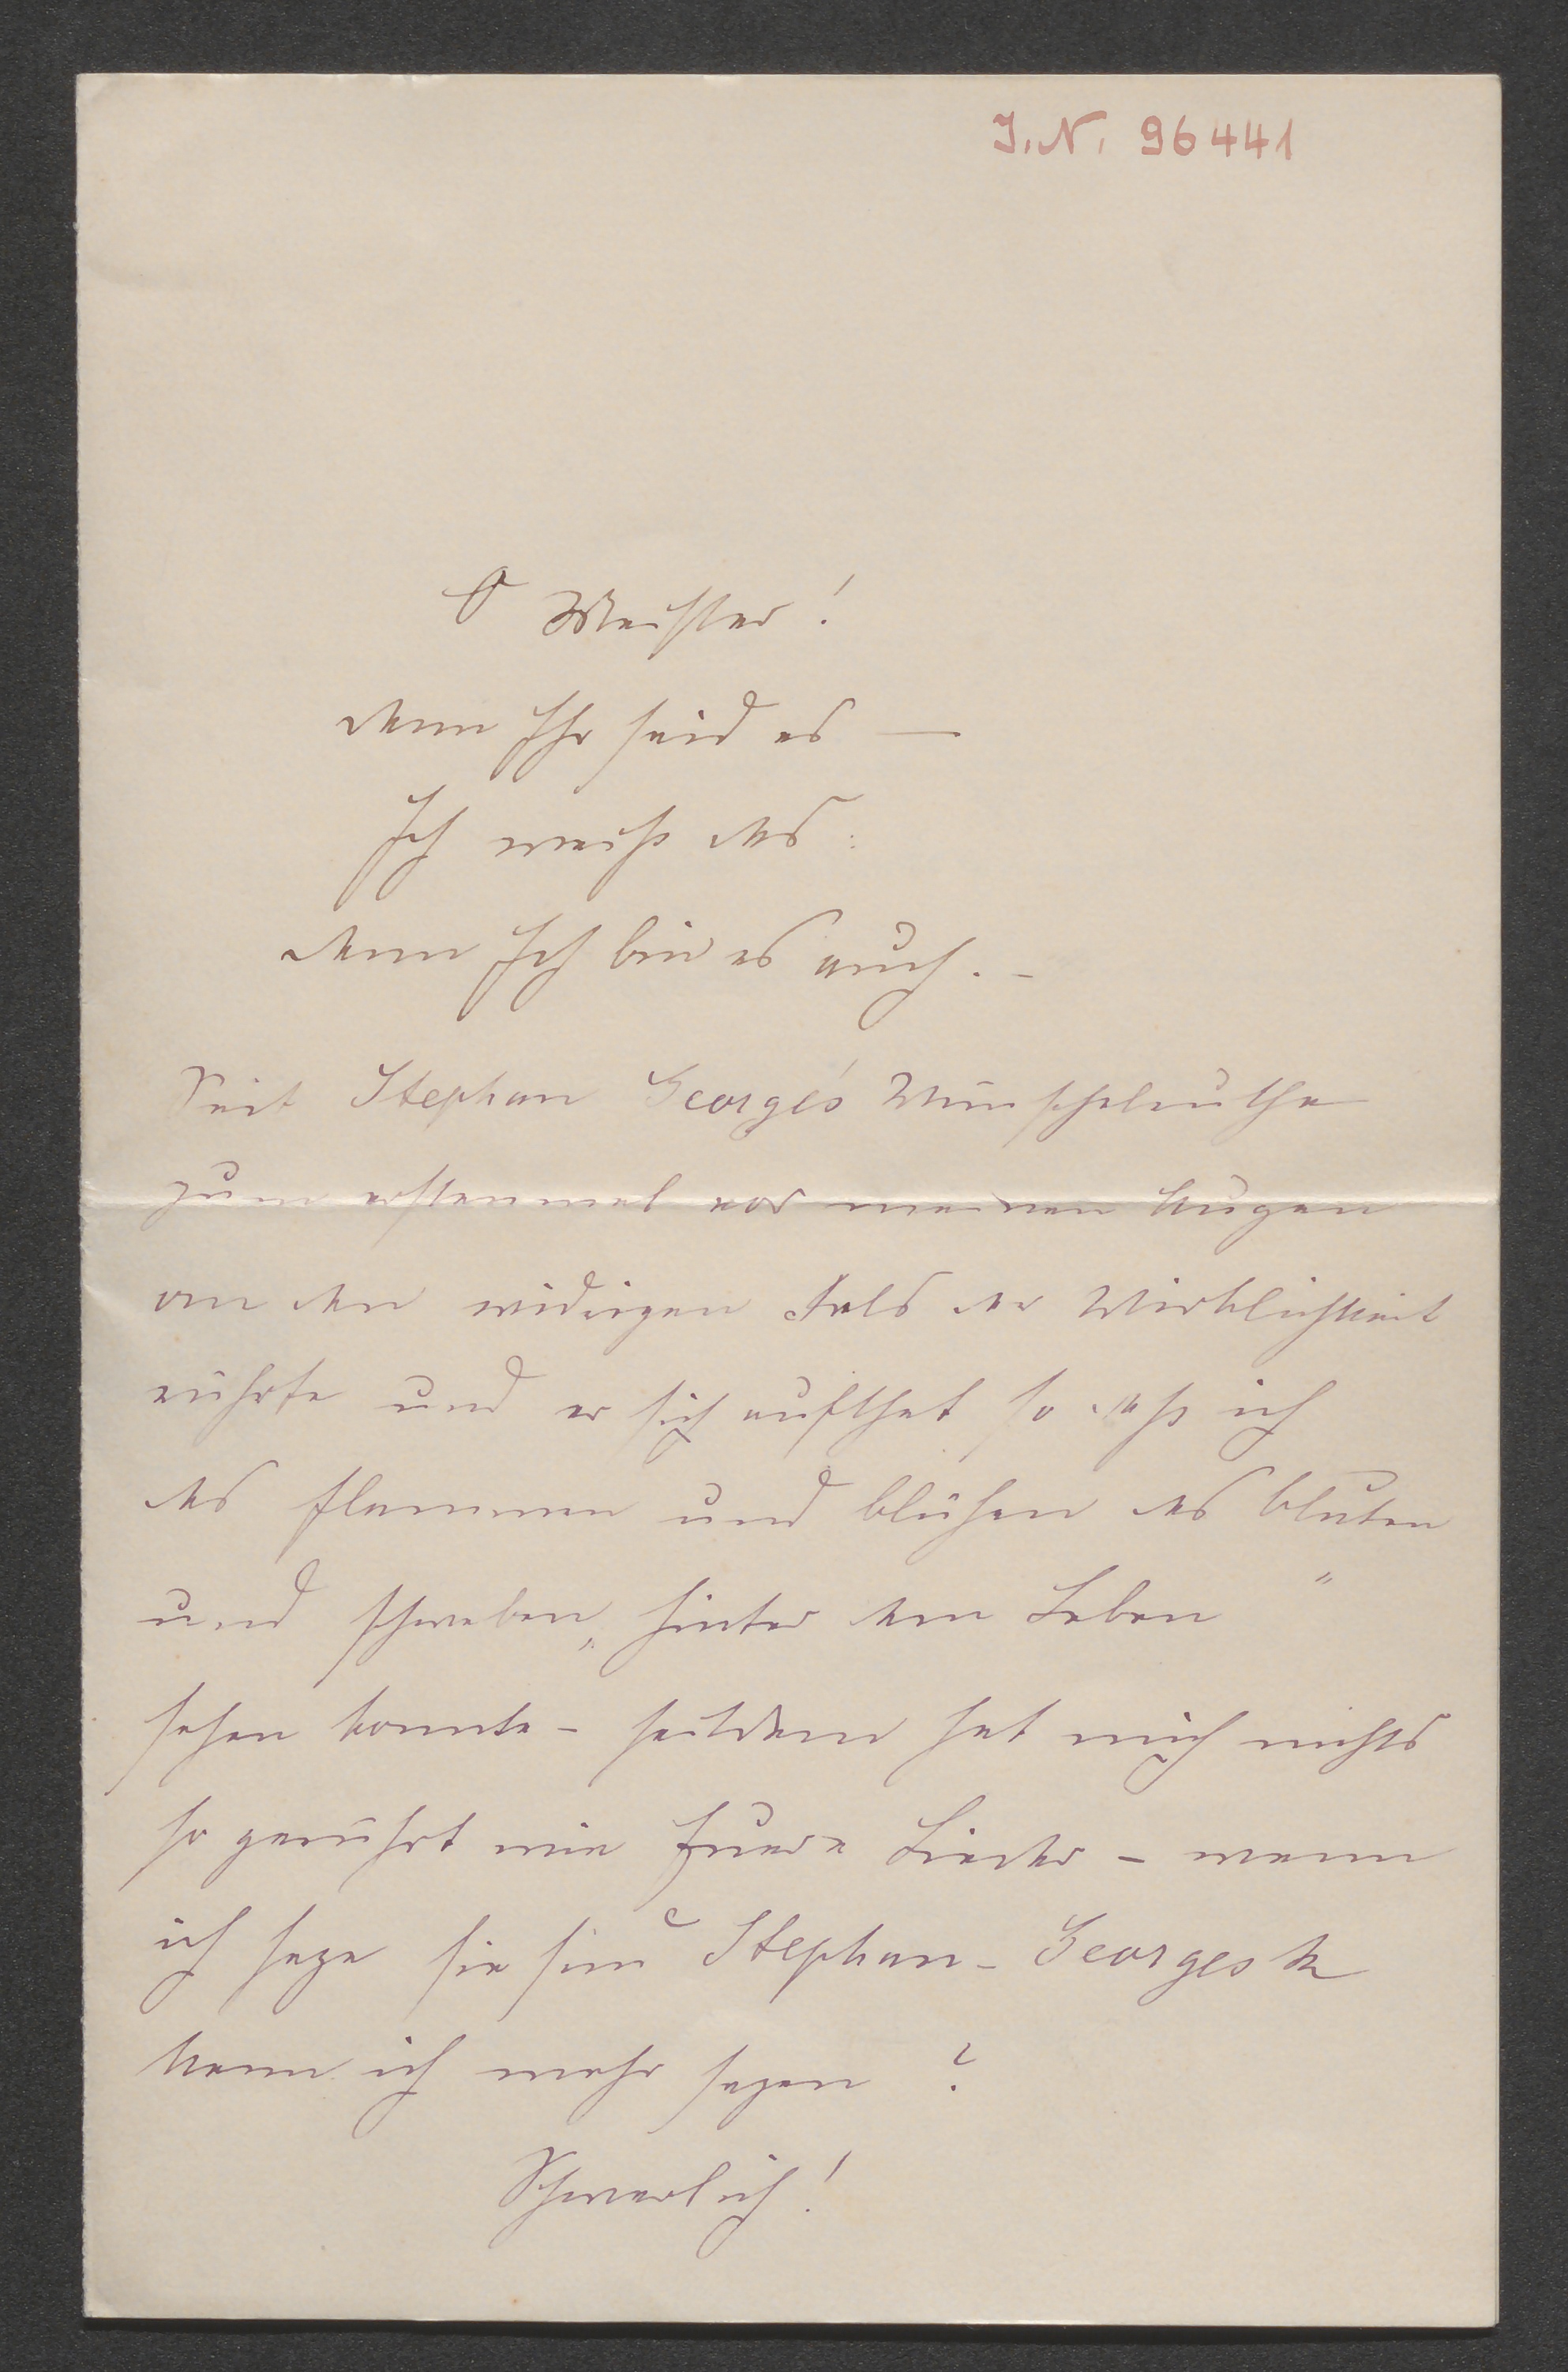 J. N. 96441
O Meister!
denn Ihr seid es —
Ich weiß das:
denn Ich bin es auch. -
Seit Stephan George's Wünschelruthe
zum erstenmal vor meinen Augen
an den widrigen Fels der Wirklichkeit
rührte und er sich aufthat so daß ich
das flammen und blühen das bluten
und schweben „hinter dem Leben"
sehen konnte - seitdem hat mich nichts
so gerührt wie Euere Lieder - wenn
ich sage sie sind Stephan-Georgesk
kann ich mehr sagen?
Schwerlich!